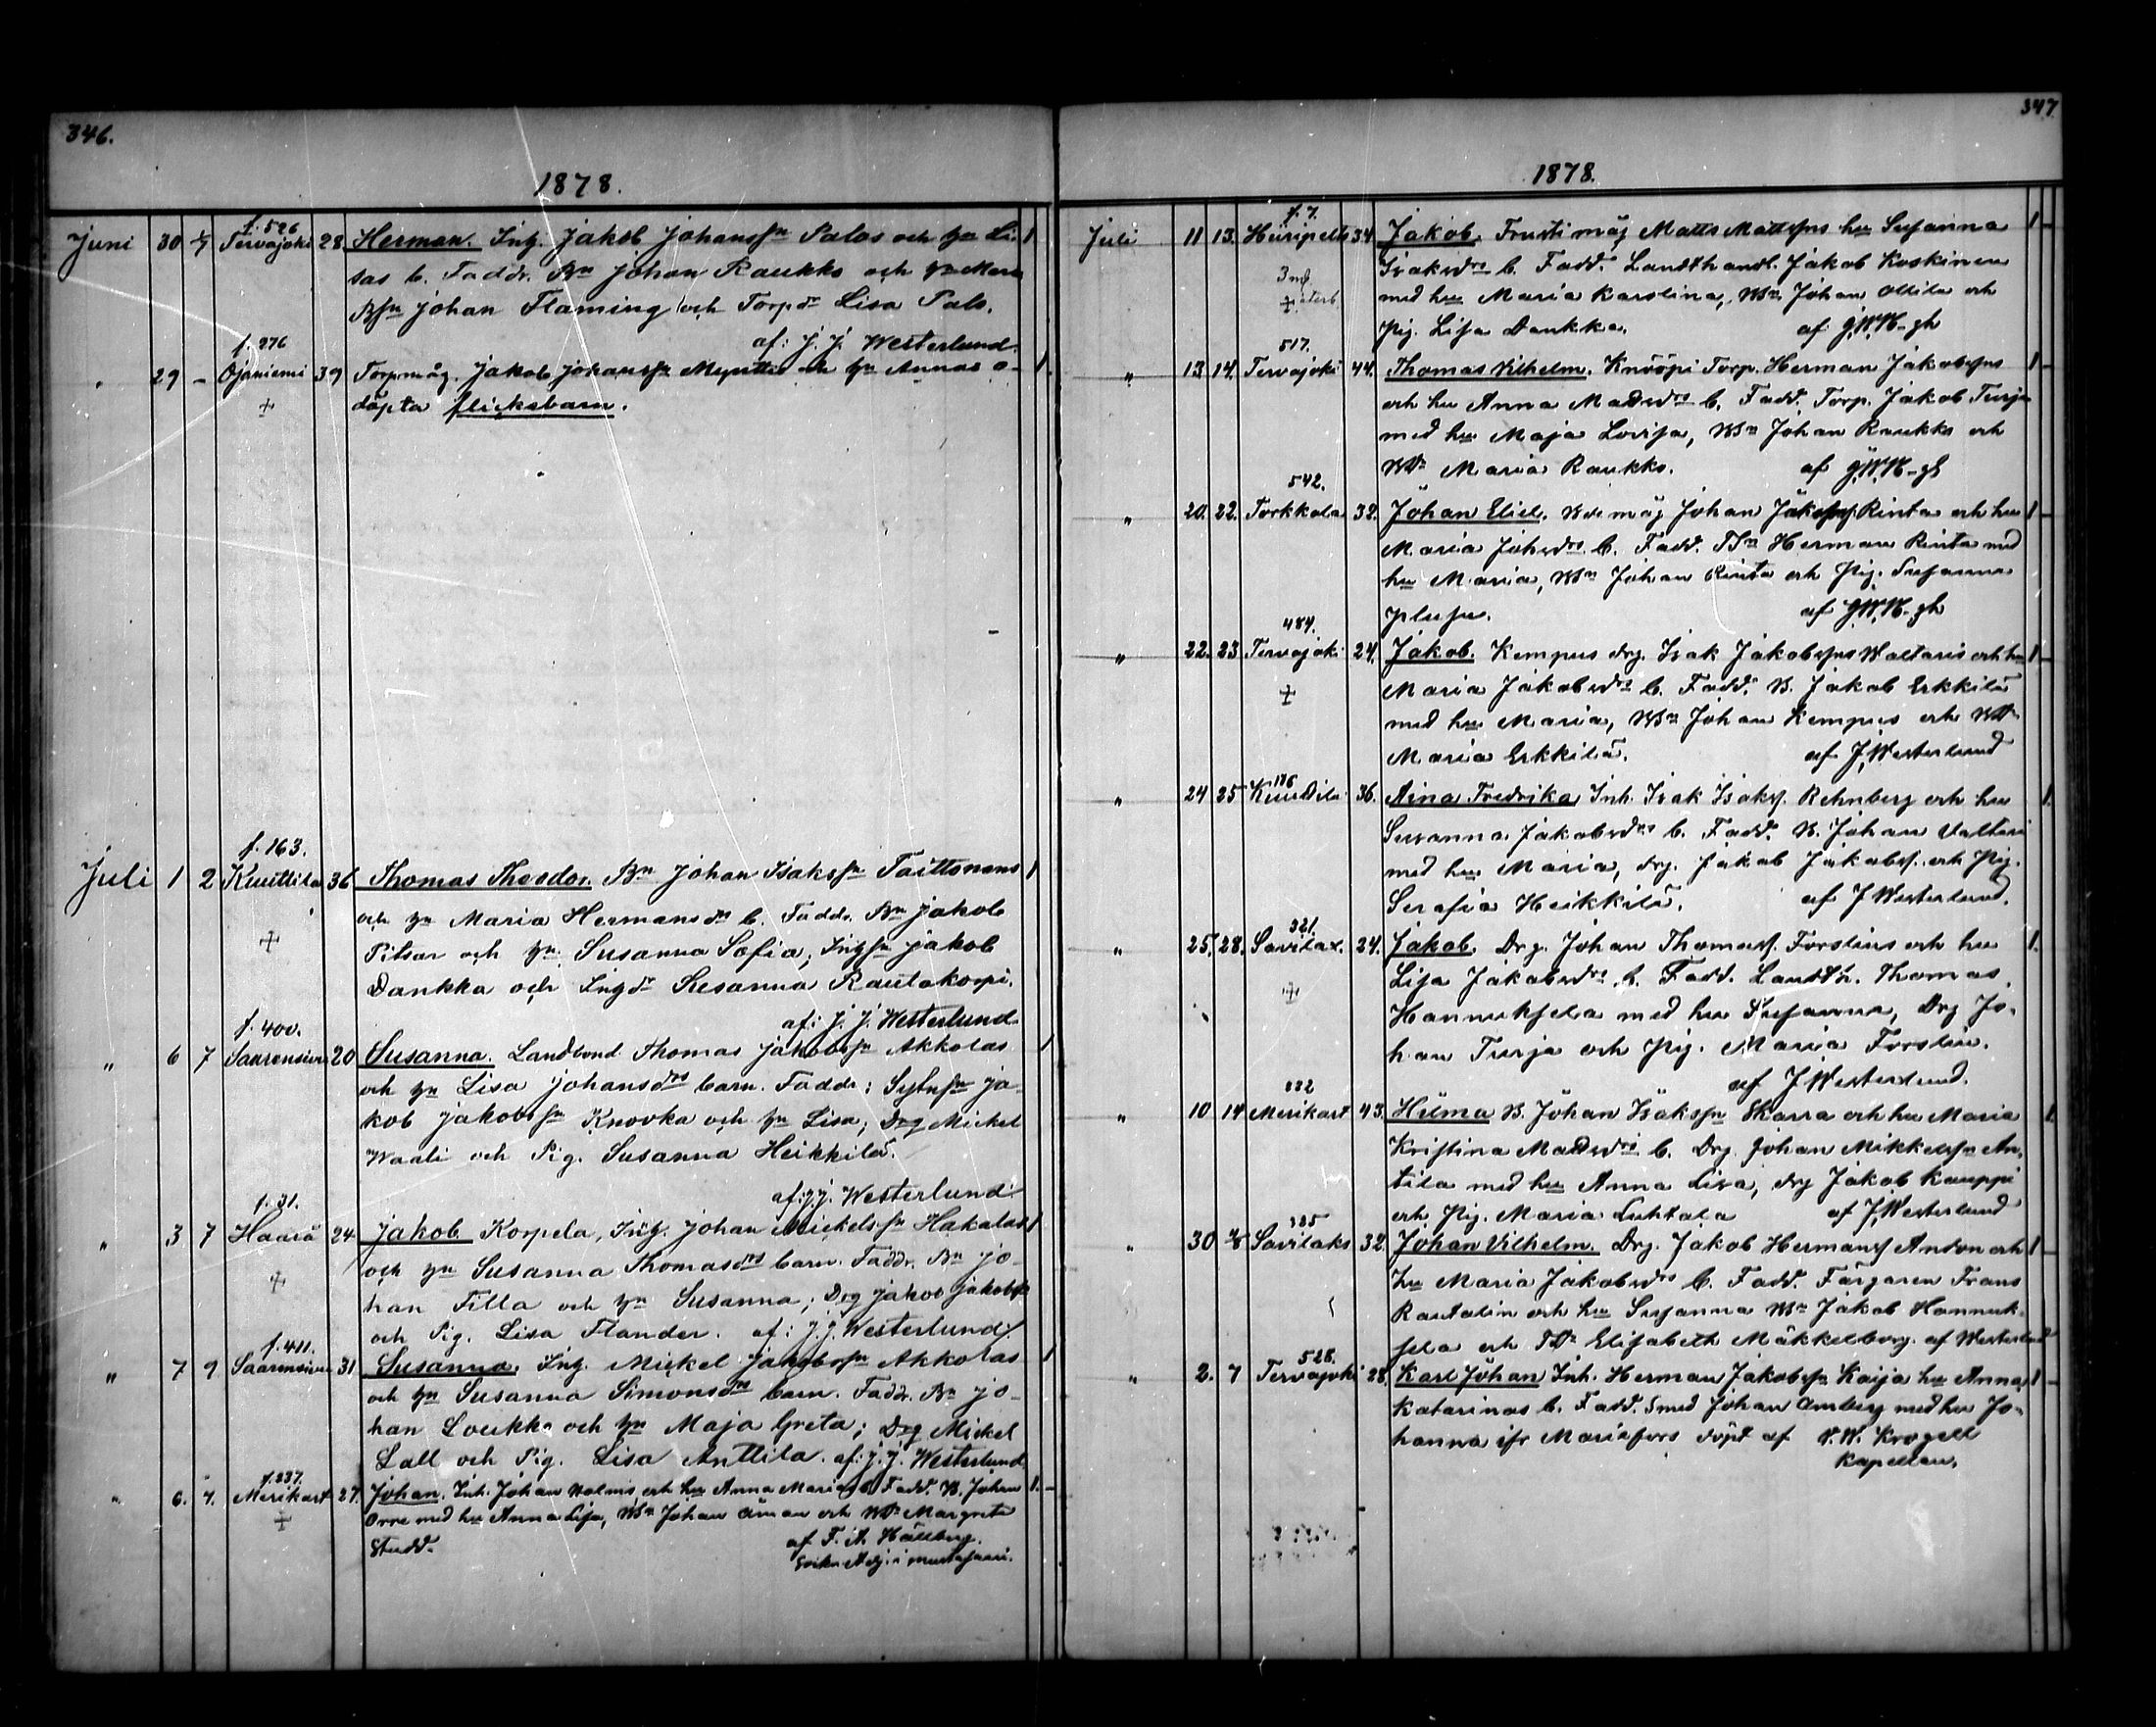 346.
1878.
f. 526
Juni 30 1/7 Tervajoki 28 Herman. Inh. Jakob Johanssn Palos och hu Li- 1
sas b. Faddr. Bn Johan Raukko och hu Maria
Bsn Johan Flaming och Torpdr Lisa Palo.
af: J. J. Westerlund.
f. 276
" 29 - Ojaniemi 39 Torpmåg. Jakob Johanssn och hu Annas o- 1
döpta flickebarn.
f. 163.
Juli 1 2 Kuuttila 36 Thomas Theodor. Bn Johan Isakssn Taittonens 1
och hu Maria Hermansdrs b. Faddr. Bn Jakob
Pilsar och hu Susanna Sofia; Inhsn Jakob
Dankka och Inhdr Susanna Rautakorpi.
af: J. J. Westerlund
f. 400.
" 6 7 Saarensivu 20 Susanna. Landbond. Thomas Jakobssn Akkolas 1
och hu Lisa Johansdrs barn. Faddr: Sytnsn Ja-
kob Jakobssn Knovka och hu Lisa; Drg Mickel
Waali och Pig. Susanna Heikkilä.
af: J. J. Westerlund
f. 31.
" 3 7 Haarä 24 Jakob. Korpela, Inh. Johan Mickelssn Hakalas 1
och hu Susanna Thomasdrs barn. Faddr. Bn Jo-
han Filla och hu Susanna; Drg Jakob Jakobss
och Pig. Lisa Flander. af: J. J. Westerlund
f. 411.
" 7 9 Saarensivu 31 Susanna. Inh. Mickel Jakobssn Akkolas 1
och hu Susanna Simonsdrs barn. Faddr. Bn Jo-
han Loukko och hu Maja Greta; Drg Mickel
Lall och Pig. Lisa Anttila. af: J. J. Westerlund
f. 337.
" 6. 7. Merikart 27. Johan. Inh. Johan Holmis och hu Anna Marias b. Fadd. B. Johan 1.
Orre med hu Anna Lisa, Bsn Johan Åman och BDr Margreta
Studd. af F. A. Hällberg.
347
1878.
f. 7.
Juli 11 13. Heiripelto 34 Jakob. Mattssns hu Susanna 1
Isaksdrs b. Fadd. Landthandl. Jakob Koskinen
med hu Maria Karolina, Bsn Johan Ollila och
Pig. Lisa Dankka. af
517.
" 13 14. Tervajoki 44. Thomas Vilhelm. Knööpi Torp. Herman Jakobssns 1
och hu Anna Mattsdrs b. Fadd. Torp. Jakob Turja
med hu Maja Lovisa, Bsn Johan Raukko och
BDr Maria Raukko. af
542.
" 20. 22. Torkkola 32. Johan Eliel. Bde måg Johan Jakobssns Rinta och hu 1
Maria Johsdrs b. Fadd. TSn Herman Rinta med
hu Maria, Bsn Johan Rinta och Pig. Susanna
af
484.
" 22. 23 Tervajoki 24. Jakob. Kempus drg. Isak Jakobssns Waltaris och hu 1
Maria Jakobsdrs b. Fadd. B. Jakob Erkkilä
med hu Maria, Bsn Johan Kempus och BDr
Maria Erkkilä. af J Westerlund
176
" 24 25 Kuuttila 36. Aina Fredrika Inh. Isak Isakss. Rehnberg och hu 1.
Susanna Jakobsdrs b. Fadd. B. Johan Valtari
med hu Maria, drg. Jakob Jakobss. och Pig.
Serafia Heikkilä. af J Westerlund.
321.
" 25. 28. Savilax. 24. Jakob. Drg. Johan Thomass. Forslins och hu 1.
Lisa Jakobsdrs b. Fadd. Landth. Thomas
Hannuksela med hu Susanna, Drg Jo-
han Turja och Pig. Maria Forslin.
af J Westerlund.
332
" 10 14 Merikart 43. Hilma B. Johan Isakssn Skarra och hu Maria 1.
Kristina Mattsdrs b. Drg. Johan Mikkelssn An-
tila med hu Anna Lisa, drg Jakob Kauppi
och Pig. Maria Luhtala af J Westerlund
335
" 30 Savilaks 32. Johan Vilhelm. Drg. Jakob Hermanss Anton och 1
hu Maria Jakobsdrs b. Fadd. Färgaren Frans
Rautalin och hu Susanna Bsn Jakob Hannuk-
sela och TDr Elisabeth Mäkkelborg. af Westerlund
528.
" 2. 7 Tervajoki 28. Karl Johan Inh. Herman Jakobssn Kaija hu Anna 1
Katarinas b. Fadd. Smed Johan Amberg med hu Jo-
hanna ifr Mariefors döpt af V. W. Krogell
Kapellan.